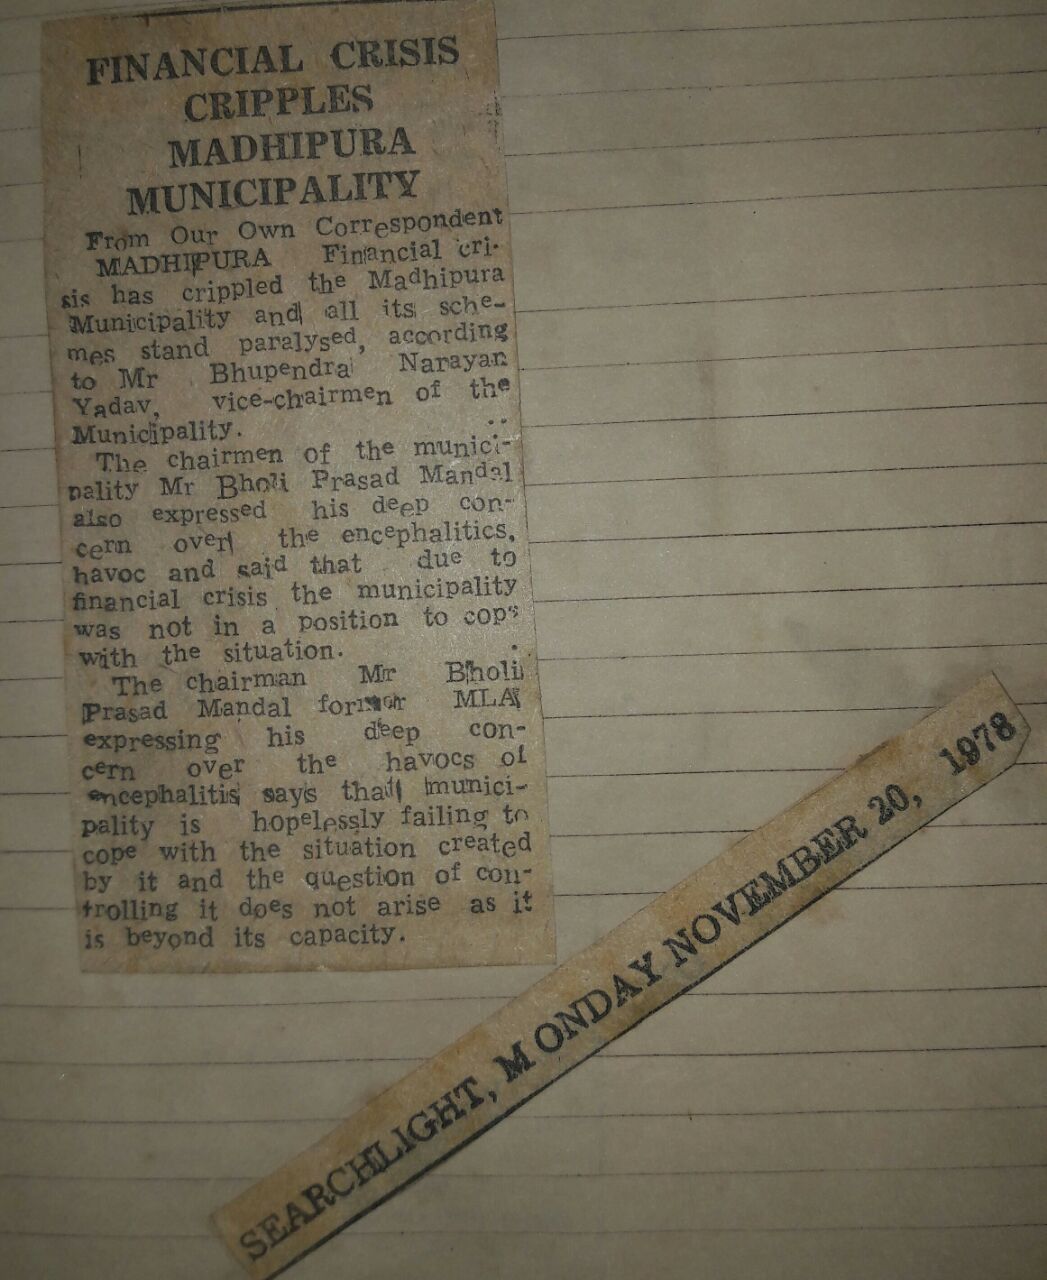 FINANCIAL CRISIS
CRIPPLES
MADHIPURA
MUNICIPALITY
From Our Own Correspondent
MADHIPURA Financial cri-
sis has crippled the Madhipura
Municipality and all its sche-
mes stand paralysed, according
to Mr Bhupendra Narayan
Yadav, vice-chairmen of the
Municipality.
The chairmen of the munici-
pality Mr Bholi Prasad Mandal
also expressed his deep con-
cern over the encephalitics,
havoc and said that due to
financial crisis the municipality
was not in a position to cope
with the situation.
The chairman Mr Bholi
Prasad Mandal former MLA
expressing his deep con-
cern over the havocs of
encephalitis says that munici-
pality is hopelessly failing to
cope with the situation created
by it and the question of con-
trolling it does not arise as it
is beyond its capacity.
SEARCHLIGHT, MONDAY NOVEMBER 20, 1978